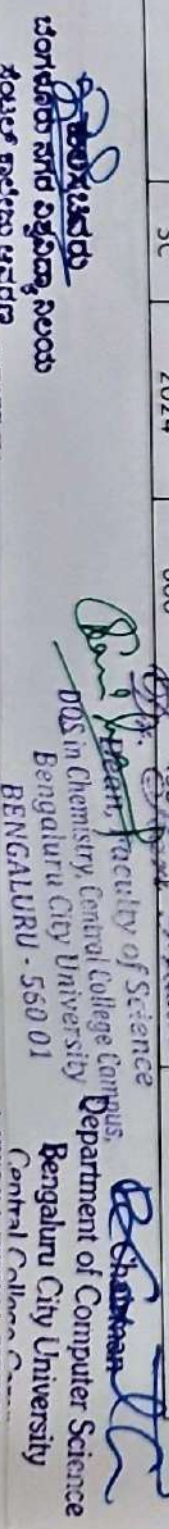 SC 2024
ಕುಲಸಚಿವರು
ಬೆಂಗಳೂರು ನಗರ ವಿಶ್ವವಿದ್ಯಾನಿಲಯ
ಸೆಂಟ್ರಲ್ ಕಾಲೇಜು ಆವರಣ
Dean, Faculty of Science
DOS in Chemistry, Central College Campus,
Bengaluru City University
BENGALURU - 560 01
Chairman
Department of Computer Science
Bengaluru City University
Central College